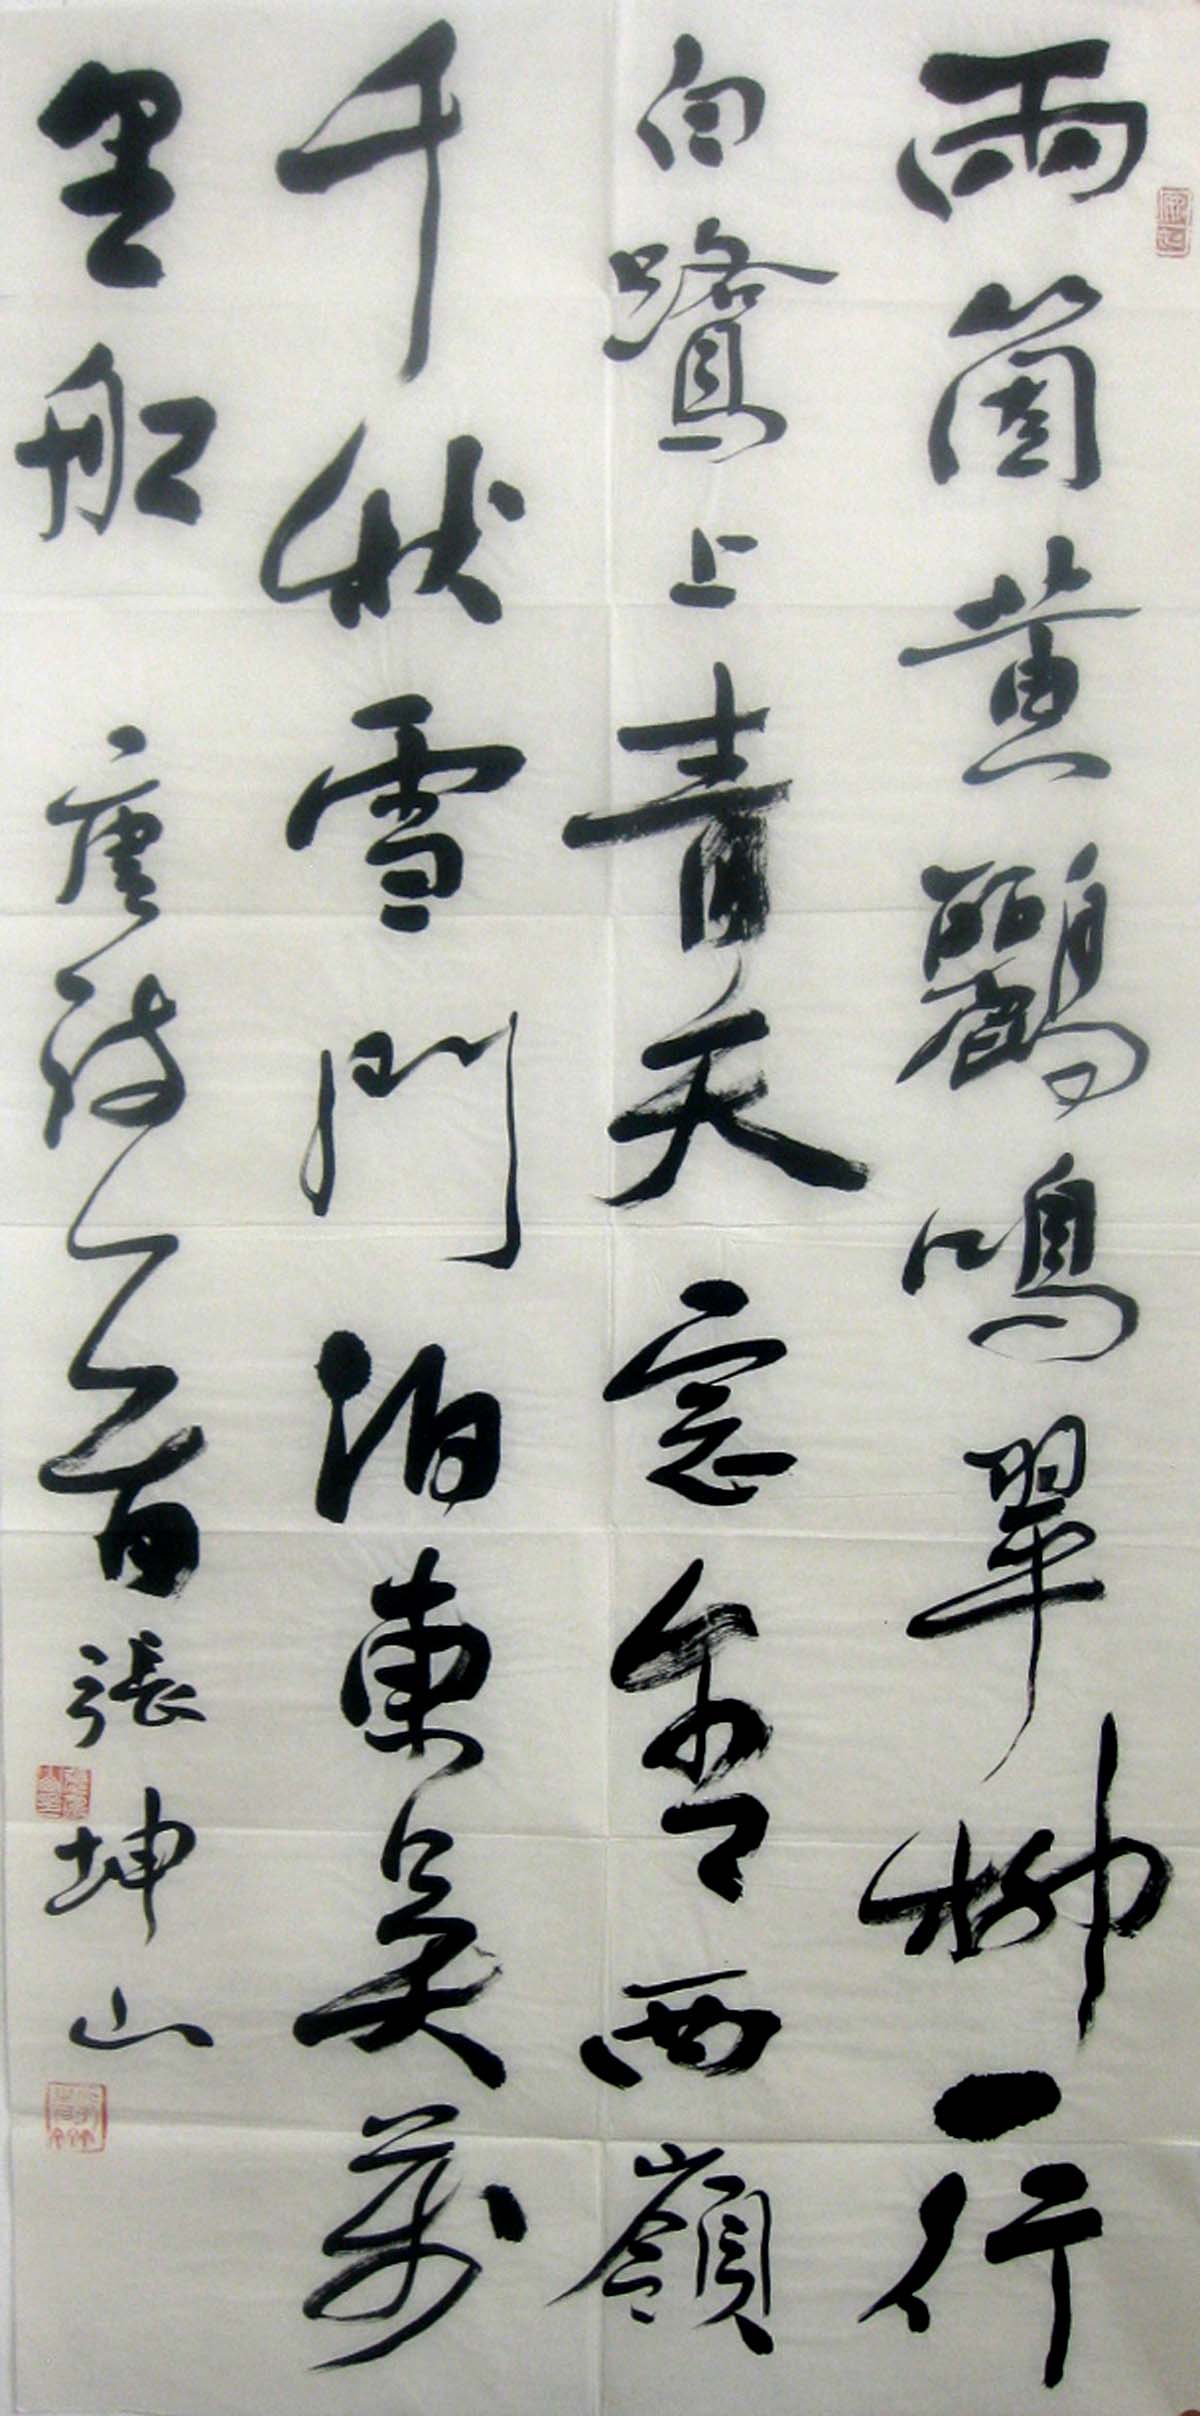 兩箇黃鸝鳴翠柳一行
白鷺上青天窓含西嶺
千秋雪門泊東吳萬
里船
唐詩一首張坤山